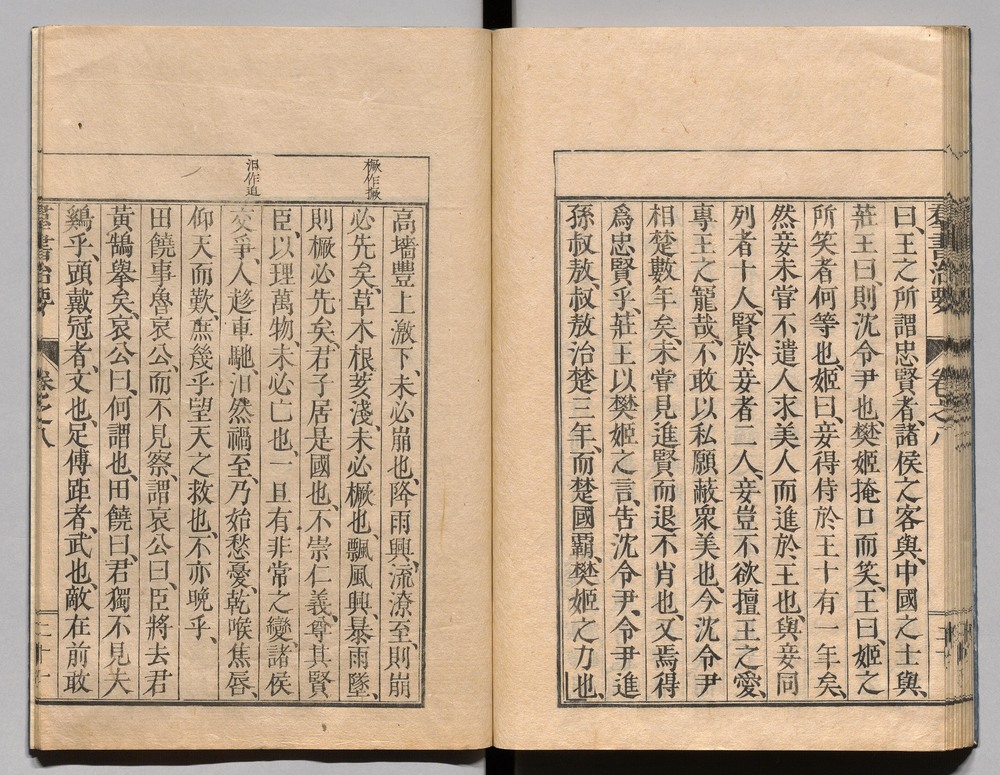 群書治要 卷之八
曰、王之所謂忠賢者、諸侯之客與、中國之士與、
莊王曰、則沈令尹也、樊姬掩口而笑、王曰、姬之
所笑者何等也、姬曰、妾得侍於王十有一年矣、
然妾未甞不遣人求美人而進於王也、與妾同
列者十人、賢於妾者二人、妾豈不欲擅王之愛、
專王之寵哉、不敢以私願蔽衆美也、今沈令尹
相楚數年矣、未甞見進賢而退不肖也、又焉得
爲忠賢乎、莊王以樊姬之言、告沈令尹、令尹進
孫叔敖、叔敖治楚三年、而楚國霸、樊姬之力也、
橛作撅
高墻豐上激下、未必崩也、降雨興、流潦至、則崩
必先矣、草木根荄淺、未必橛也、飄風興、暴雨墜、
則橛必先矣、君子居是國也、不崇仁義、尊其賢
臣、以理萬物、未必亡也、一旦有非常之變、諸侯
汩作迫
交爭、人趍車馳、汩然禍至、乃始愁憂、乾喉焦唇、
仰天而歎、庶幾乎望天之救也、不亦晩乎、
田饒事魯哀公、而不見察、謂哀公曰、臣將去君
黃鵠擧矣、哀公曰、何謂也、田饒曰、君獨不見夫
鷄乎、頭戴冠者、文也、足傅距者、武也、敵在前敢
羣書治要 卷之八